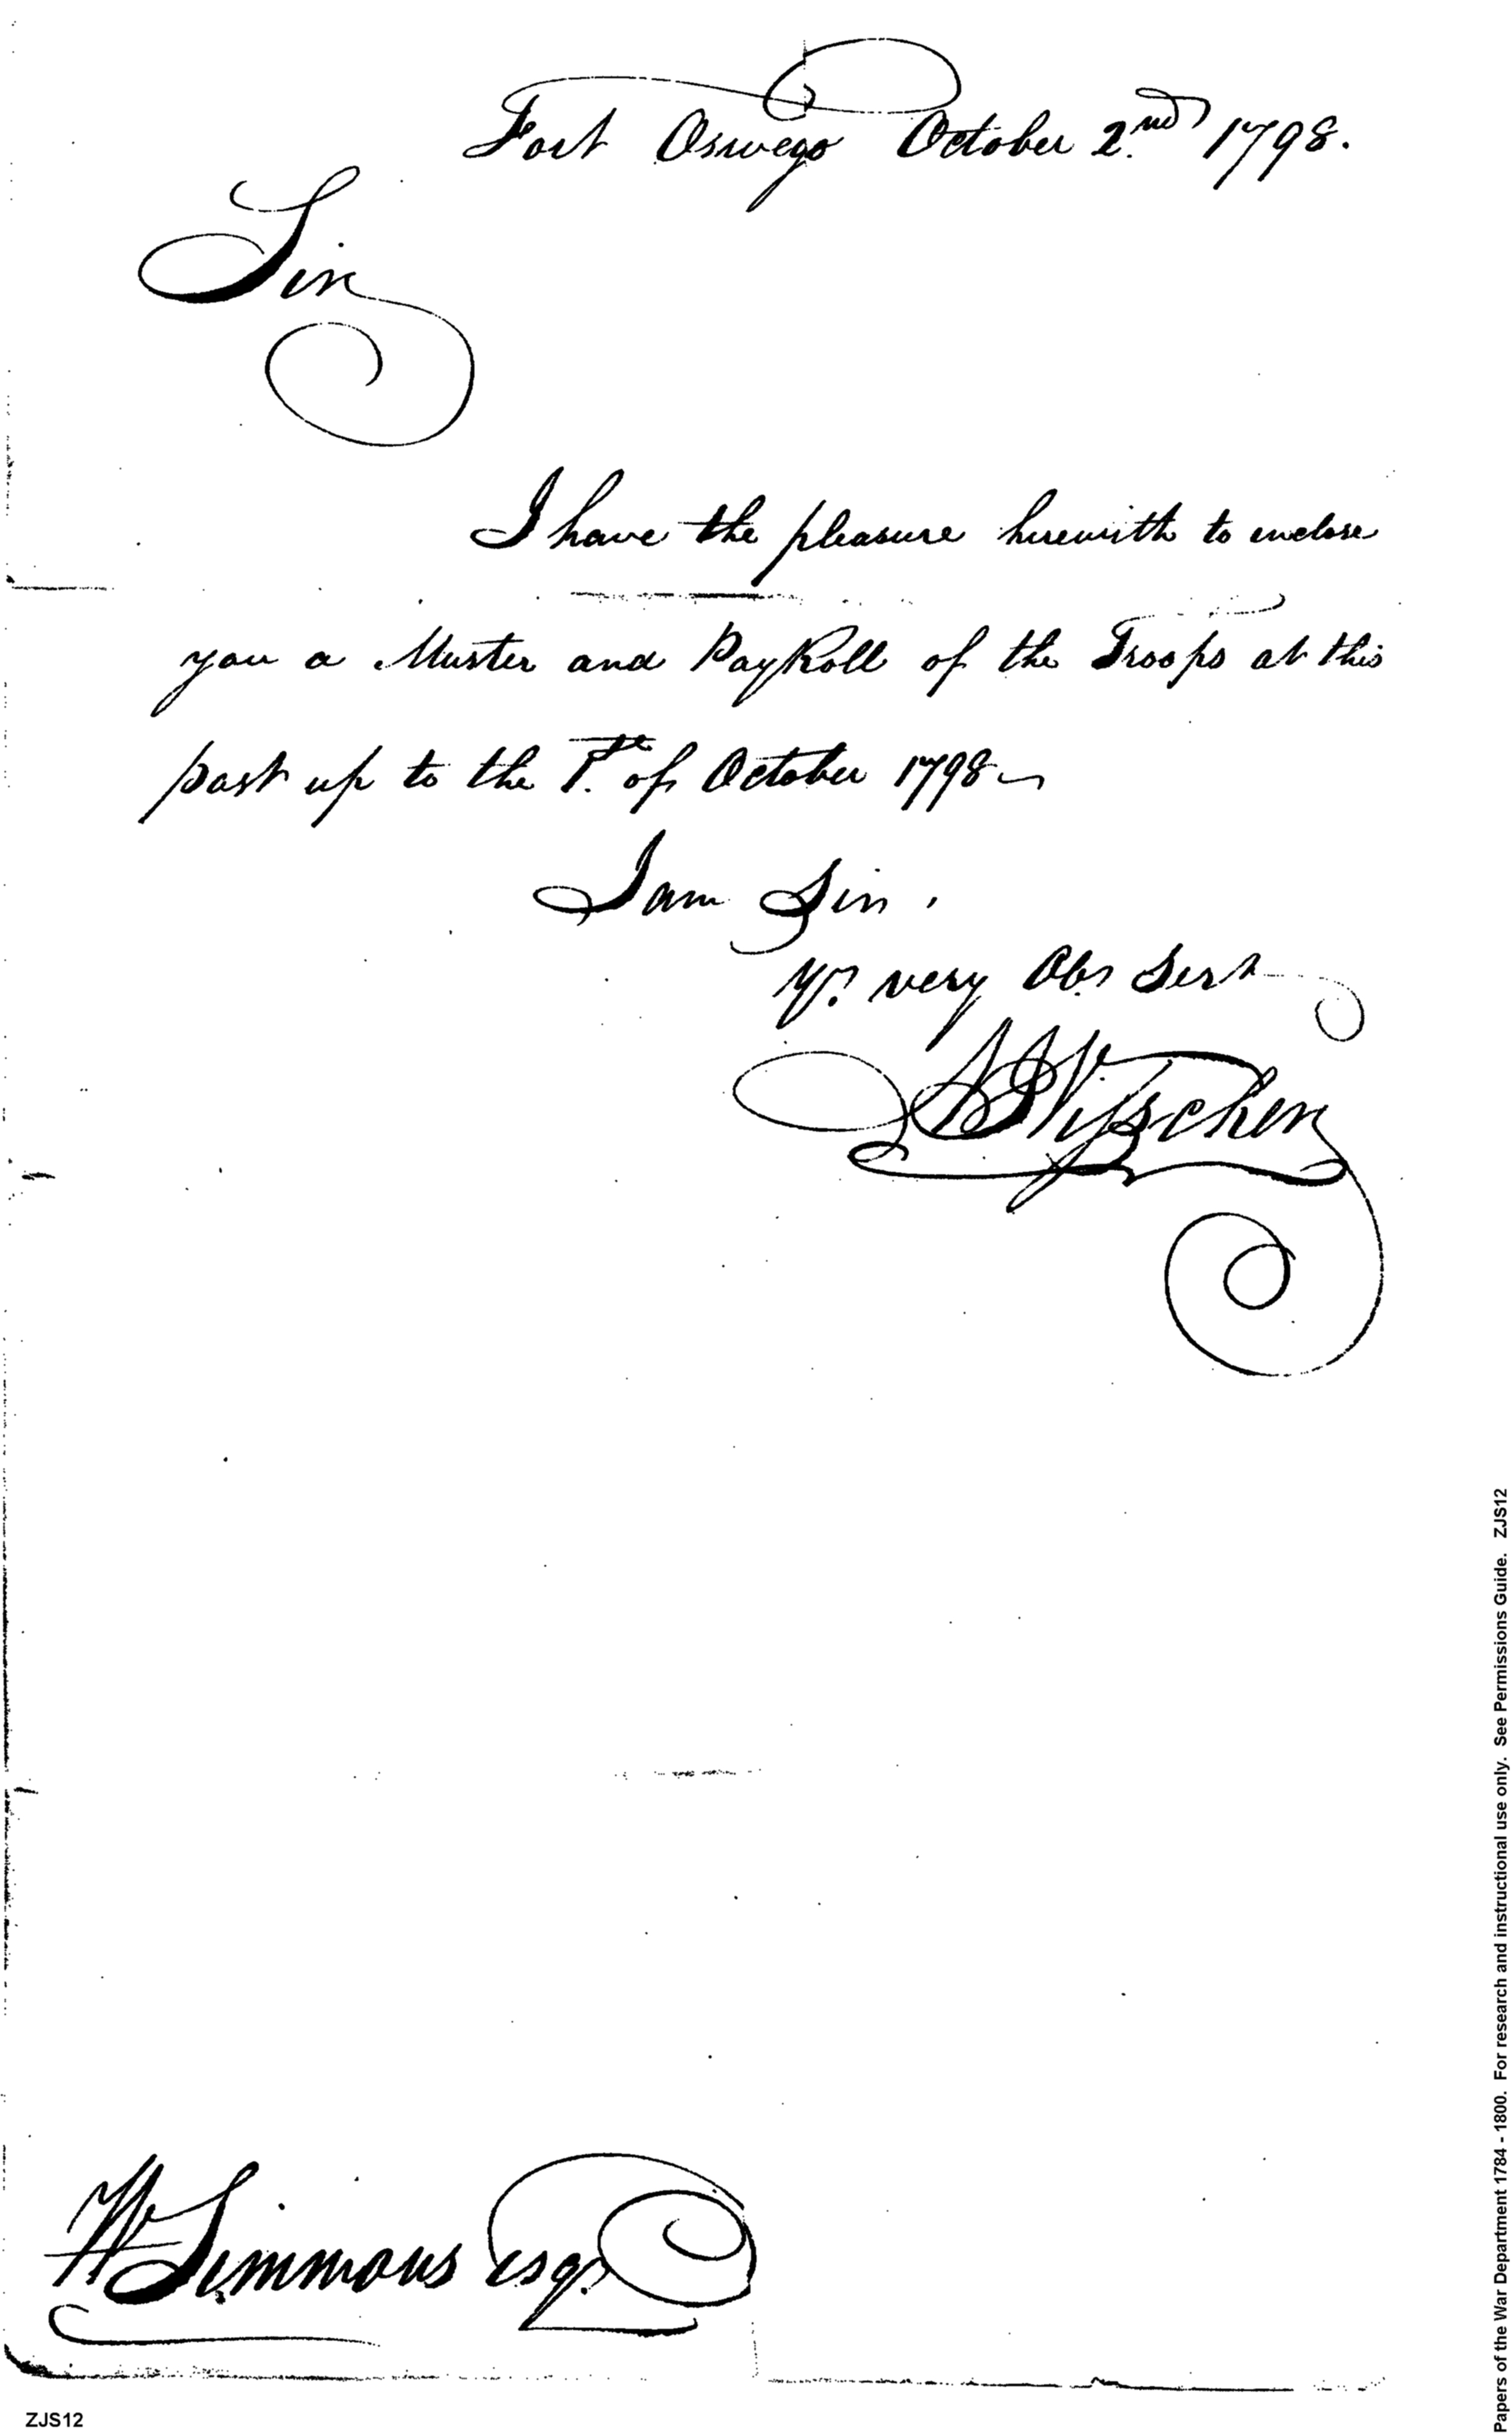 Fort Oswego October 2nd 1798.
Sir
I have the pleasure herewith to enclose
you a Muster and Pay Roll of the Troops at this
post up to the 1st. of October 1798
I am Sir,
Yr. very Obt Sert
W Simmons esqr.
ZJS12
Papers of the War Department 1784 - 1800. For research and instructional use only. See Permissions Guide. ZJS12